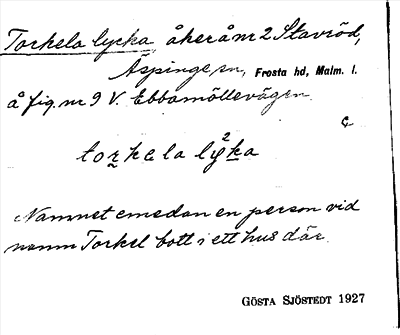 Torkela lycka, åker å nr 2 Stavröd,
Äspinge sn, Frosta hd, Malm. l.
å fig. nr 9 V. Ebbamöllevägen.
torkela lyka
2
Namnet emedan en person vid
namn Torkel bott i ett hus där.
GÖSTA SJÖSTEDT 1927